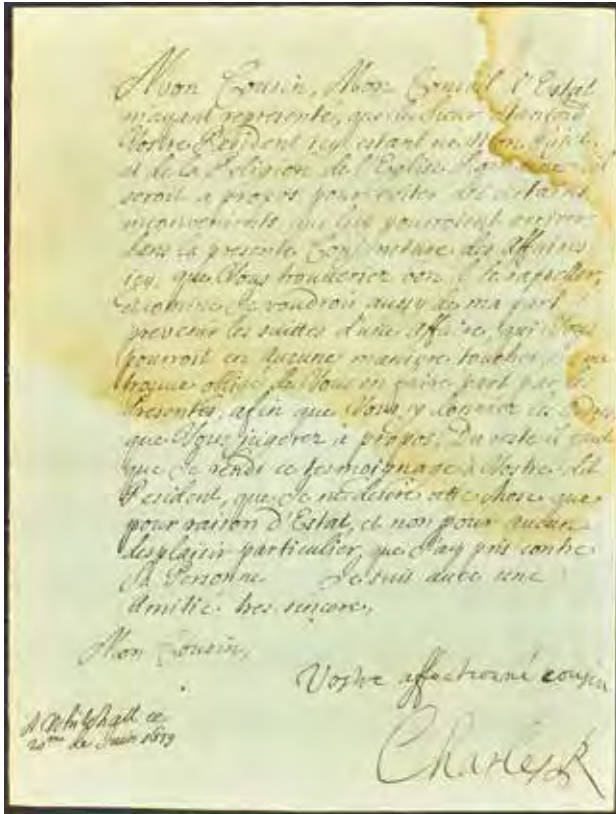 Mon Cousin, Mon Conseil d'Estat
m'ayant representé, que le Sieur
Vostre Resident icy estant né Mon Sujet
et de la Religion de l'Eglise Romaine, il
seroit a propos pour eviter de certains
inconvenients, qui luy pourroient arriver
dans la presente Conjoncture des Affaires
icy, que Vous trouveriez bon de le rappeller,
et comme Je voudrois aussy de ma part
prevenir les suittes d'une affaire, qui Vous
pourroit en aucune maniere toucher,
trouve obligé de Vous en faire part par ce
Presentes, afin que Vous y donniez les Ordres
que Vous jugerez à propos. Du reste il faut
que Je rende ce tesmoignage à Vostre dit
Resident, que Je ne desire cette chose que
pour raison d'Estat, et non pour aucun
desplaisir particulier, que J'ay pris contre
Sa Personne. Je suis avec une
Amitié tres sincere,
Mon Cousin,
Vostre affectionné cousin
Charles R
A Whitehall ce
20me de Juin 1679